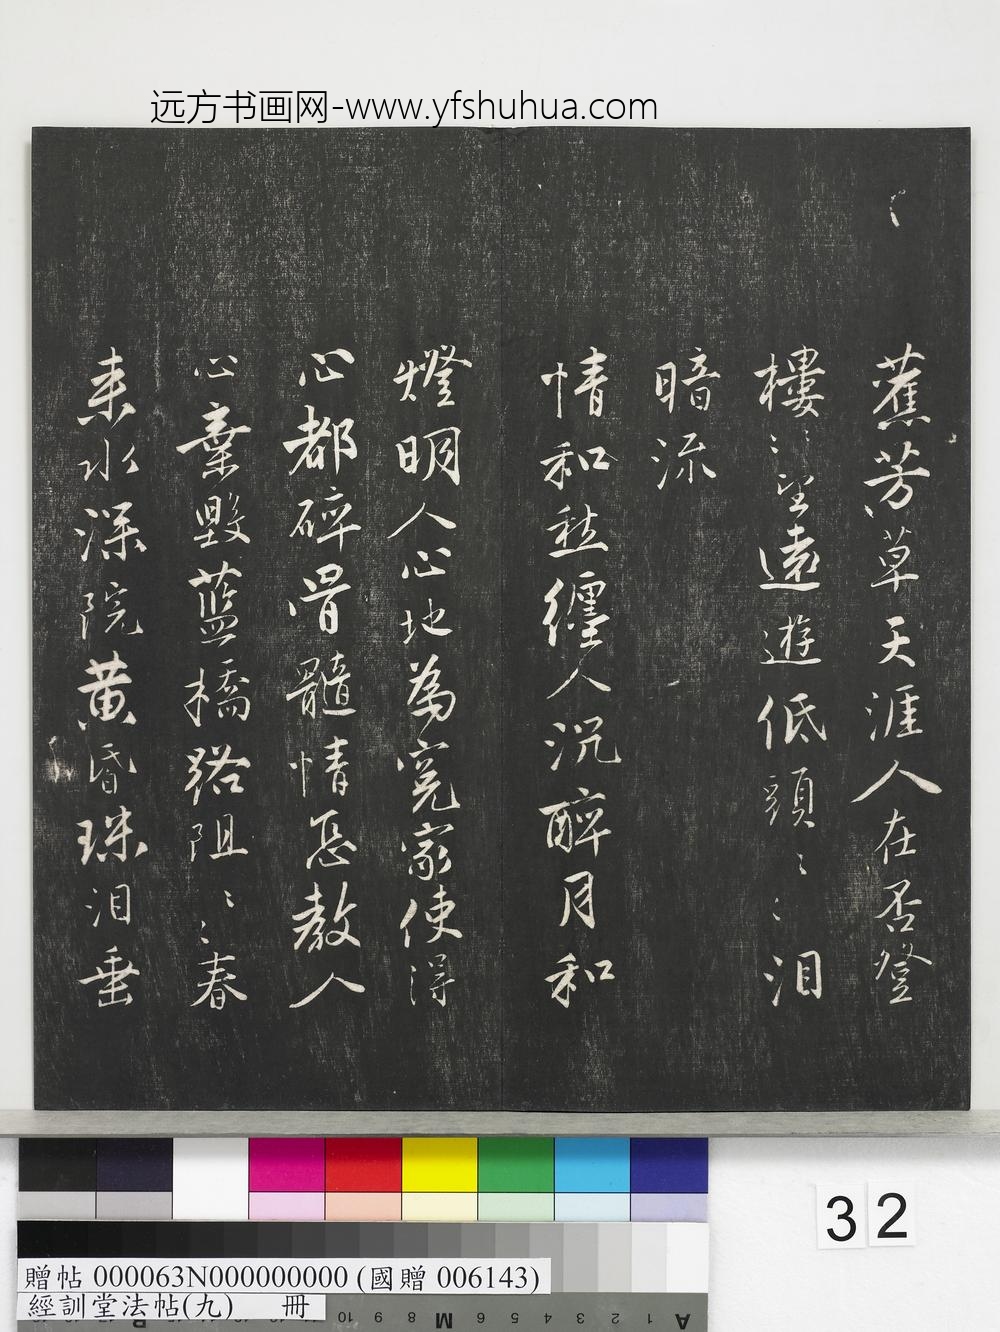 远方书画网-www.yfshuhua.com
蕉芳草天涯人在否登
樓〻望遠遊低頭〻〻泪
暗流
情和愁纏人沉醉月和
燈明人心地為寃家使得
心都碎骨髓情忍教人
心棄毀藍橋路阻〻〻春
来水深院黄昏珠泪垂
32
贈帖 000063N000000000 (國贈 006143)
經訓堂法帖(九) 冊